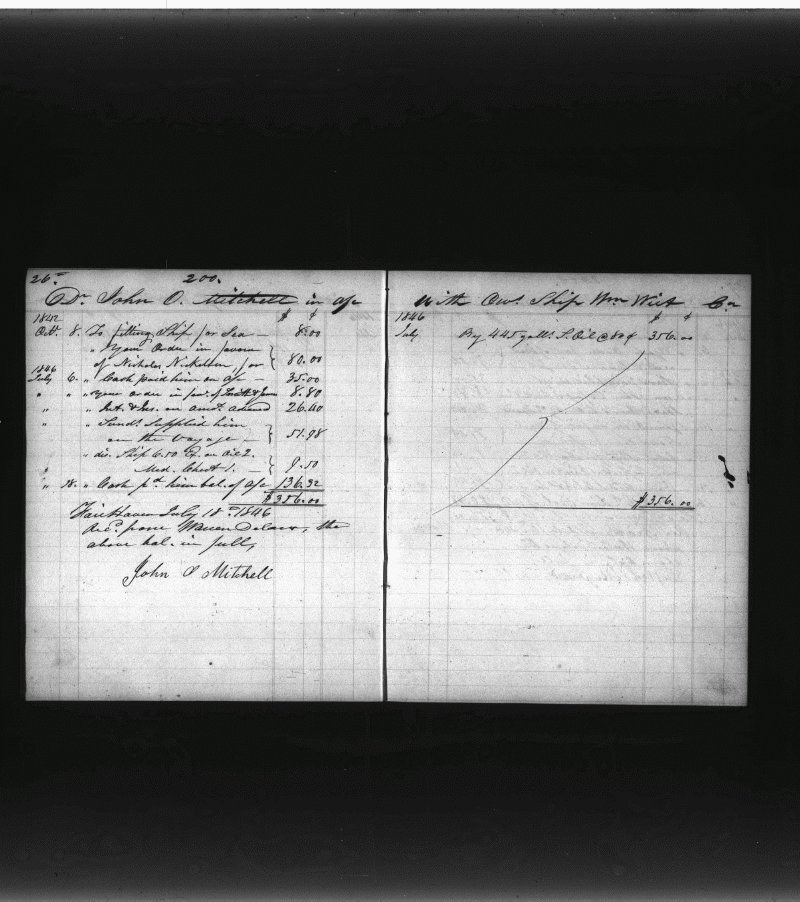 26 200.
Dr John O. Mitchell in a/c
1842 $ ¢
Octr 8. To fitting Ship for Sea — 8.00
" Your Order in favour
of Nicholas Nickelson, for 80.00
1846
July 6. " Cash paid him on a/c — 35.00
" " " your order in fav. of & 8.80
" " Int. & Ins. on amt. advanced 26.40
" " Sunds. Supplied him
on the Voyage — 51.98
" dis. Ship 6.50 Ex. on Oil 2.
Med. Chest 1. — 9.50
" 18. " Cash pd. him bal. of a/c 136.32
$356.00
Fairhaven July 18th 1846
Recd. from Warren Delano, the
above bal. in full,
John O Mitchell
With Ows. Ship Wm Wirt Cr
1846 $ ¢
July By 445 galls. S. Oil @ 80¢ 356.00
$356.00